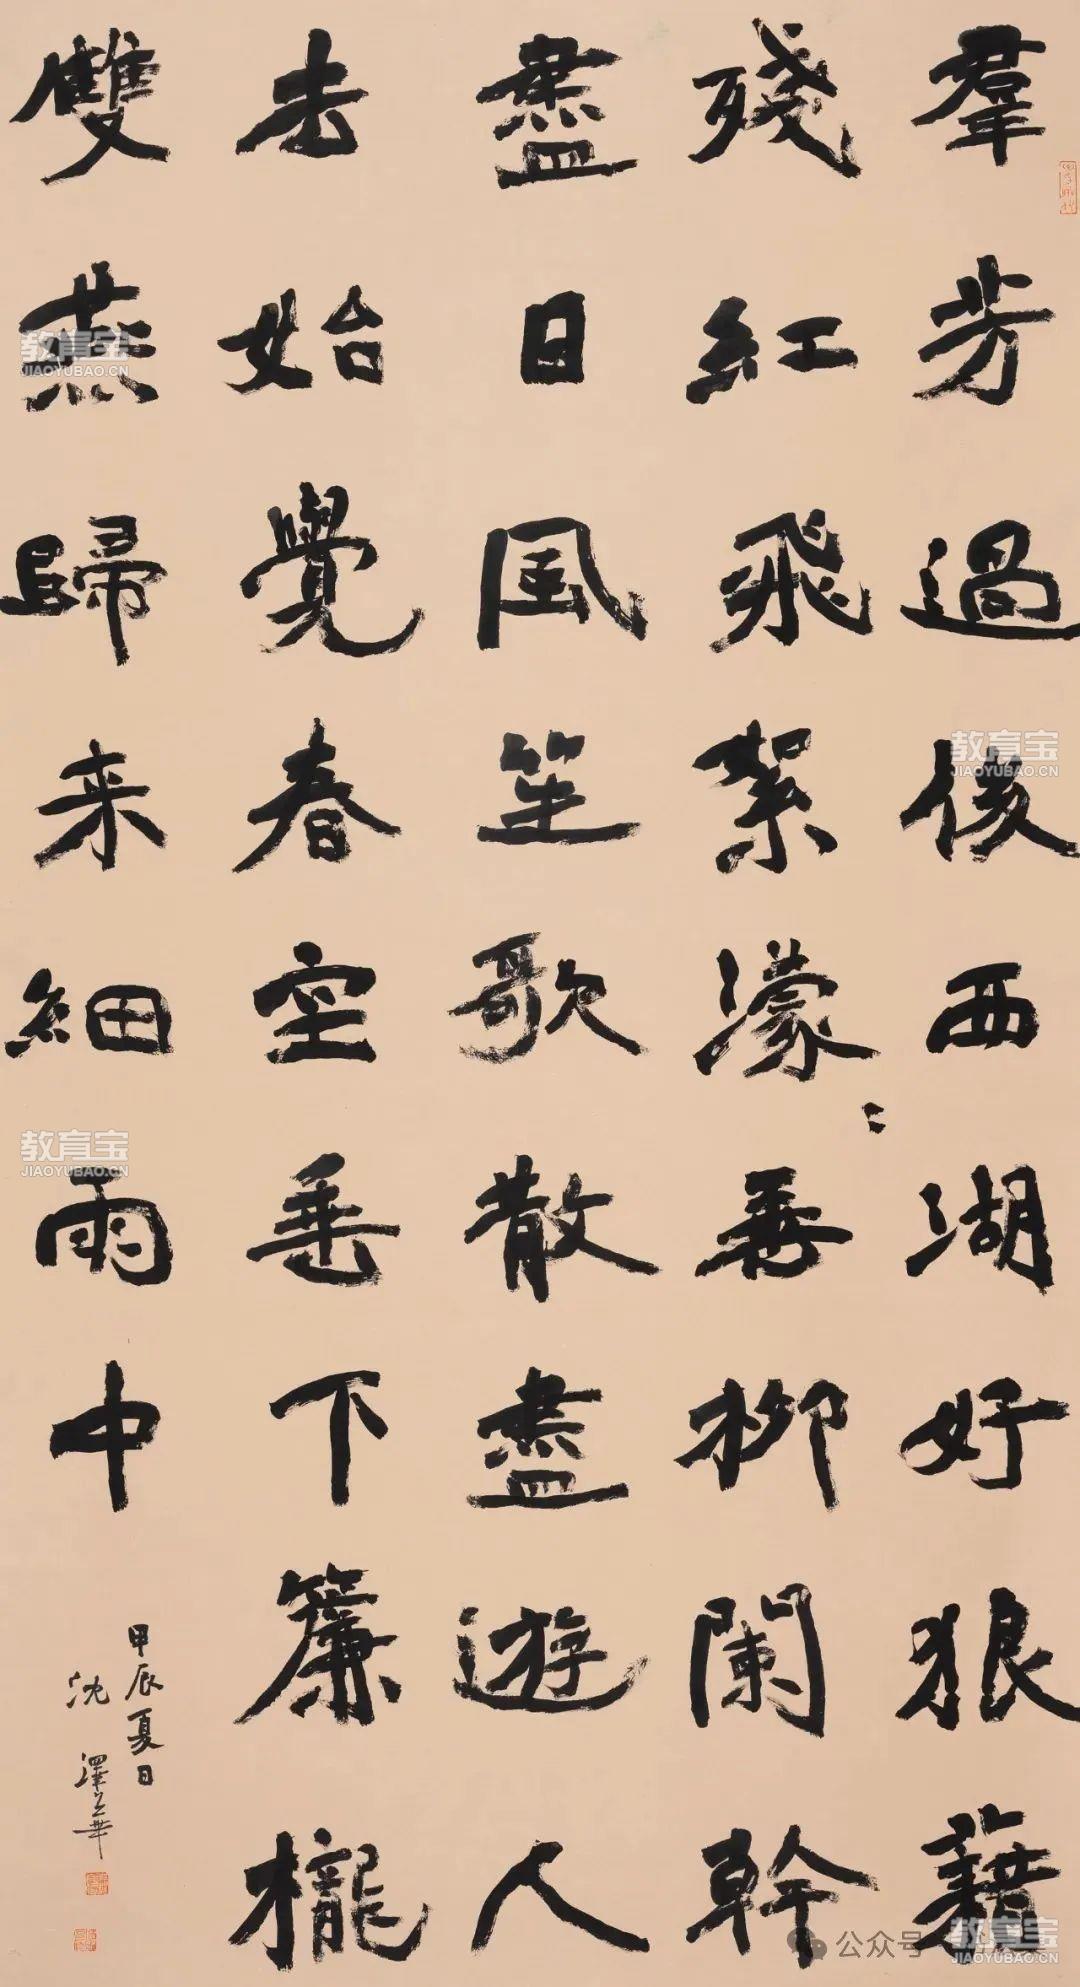 羣芳過後西湖好狼藉
殘紅飛絮濛〻垂柳闌幹
盡日風笙歌散盡遊人
去始覺春空垂下簾櫳
雙燕歸来細雨中
甲辰夏日
沈澤華
教育宝
JIAOYUBAO.CN
教育宝
JIAOYUBAO.CN
教育宝
JIAOYUBAO.CN
教育宝
JIAOYUBAO.CN
公众号